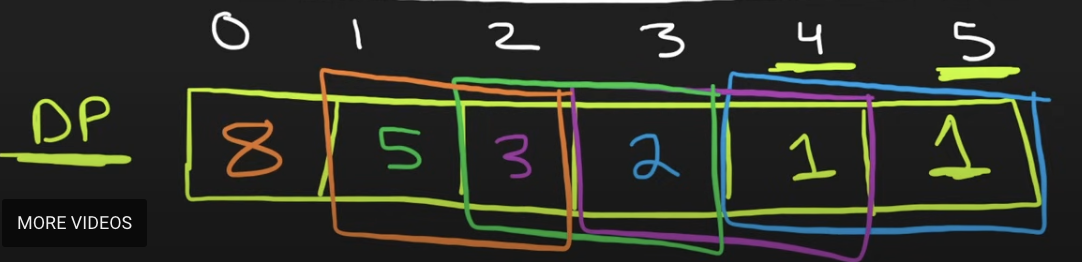 0 1 2 3 4 5
DP 8 5 3 2 1 1
MORE VIDEOS